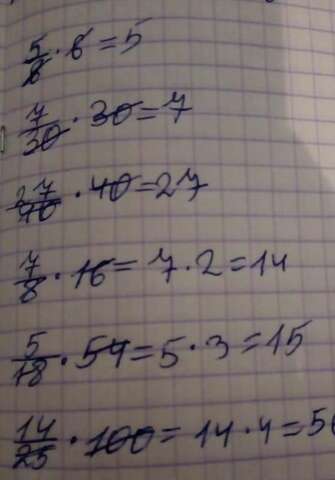 5/6 · 6 = 5
7/30 · 30 = 7
27/40 · 40 = 27
7/8 · 16 = 7 · 2 = 14
5/18 · 54 = 5 · 3 = 15
14/25 · 100 = 14 · 4 = 56